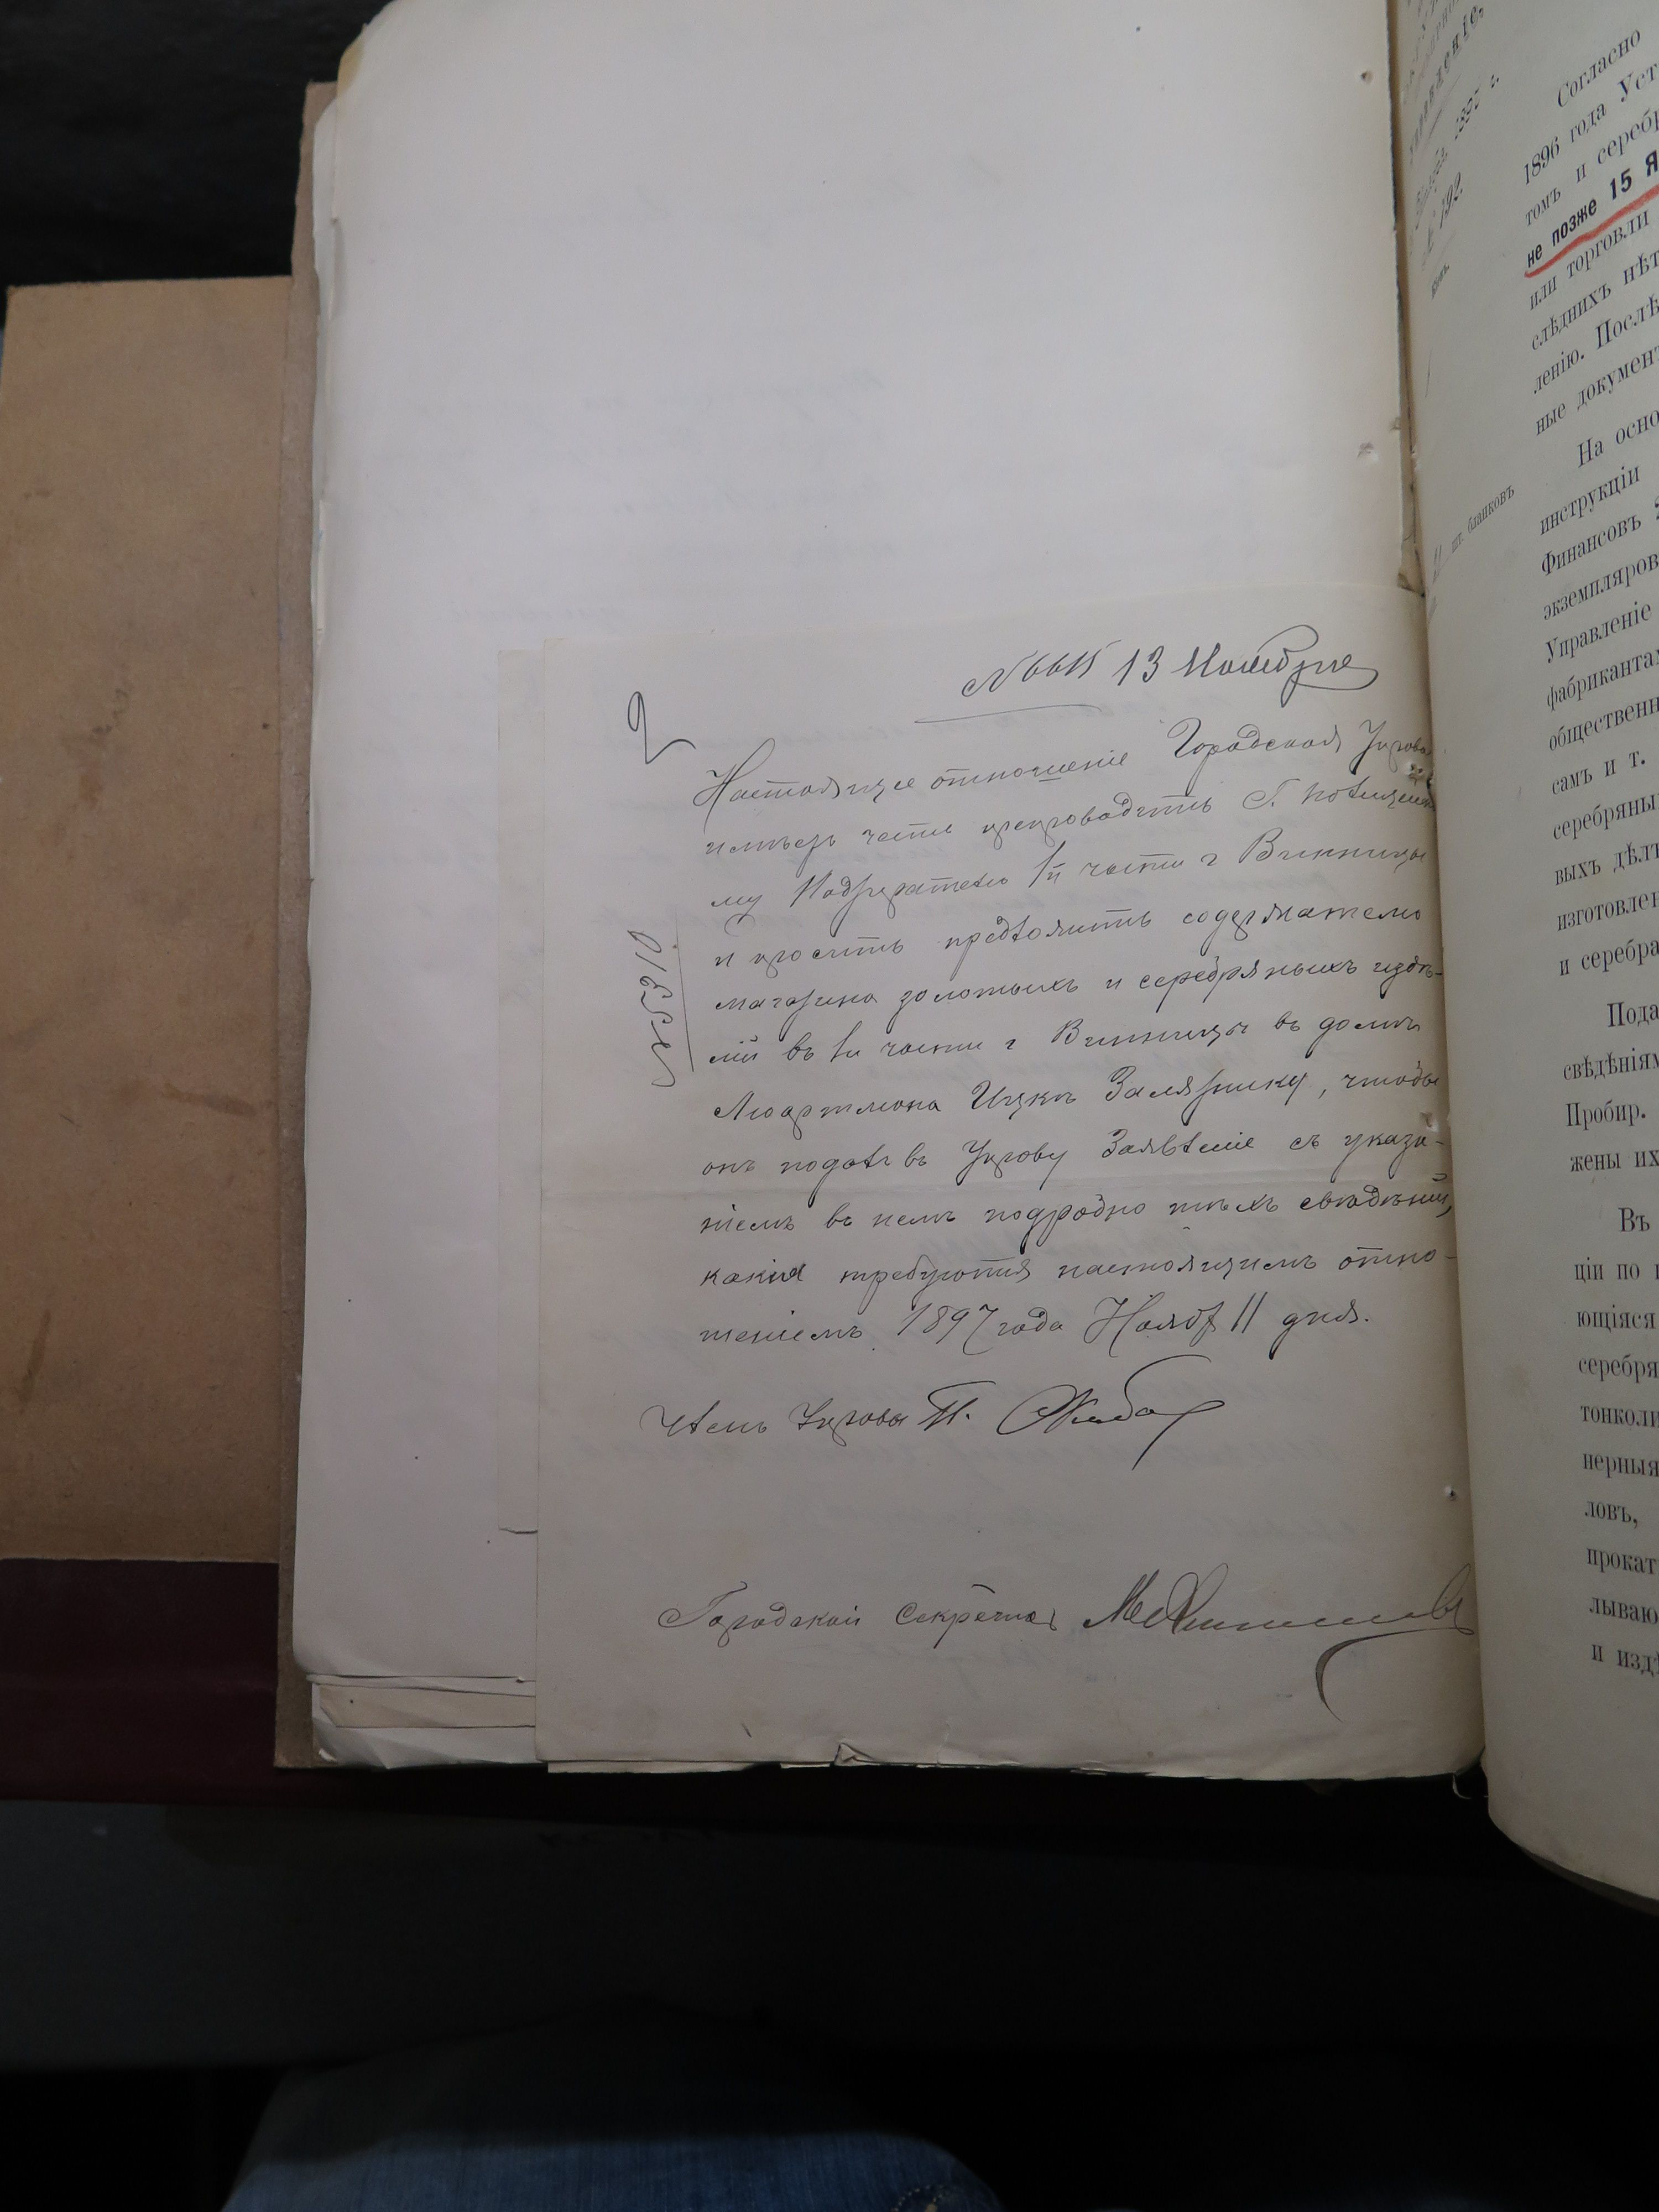 13 Ноября
2
Настоящее отношеніе Городская Управа
имѣетъ честь препроводить Г. Полицейско
му Надзирателю 1й части г Винницы
и просить предложить содержателю
магазина золотыхъ и серебряныхъ издѣ-
лій въ 1й части г Винницы въ домѣ
Ицкѣ, чтобы
онъ подалъ въ Управу Заявленіе съ указа-
ніемъ въ немъ подробно тѣхъ свѣдѣній,
какія требуются настоящимъ отно-
шеніемъ 1897 года Нояб 11 дня.
Членъ Управы П.
Городской Секретарь
1897 г.
№ 192
шт. бланковъ
Согласно
1896 года Уст
томъ и сереб
не позже 15 Я
или торговли
слѣднихъ нѣт
ленію. Послѣ
ные документ
На осно
инструкціи
Финансовъ
экземпляров
Управленіе
фабриканта
общественн
самъ и т.
серебряны
выхъ дѣлъ
изготовлен
и серебра
Пода
свѣдѣніям
Пробир.
жены их
Въ
ціи по
ющіяся
серебря
тонколи
нерныя
ловъ,
прокат
лываю
и издѣ